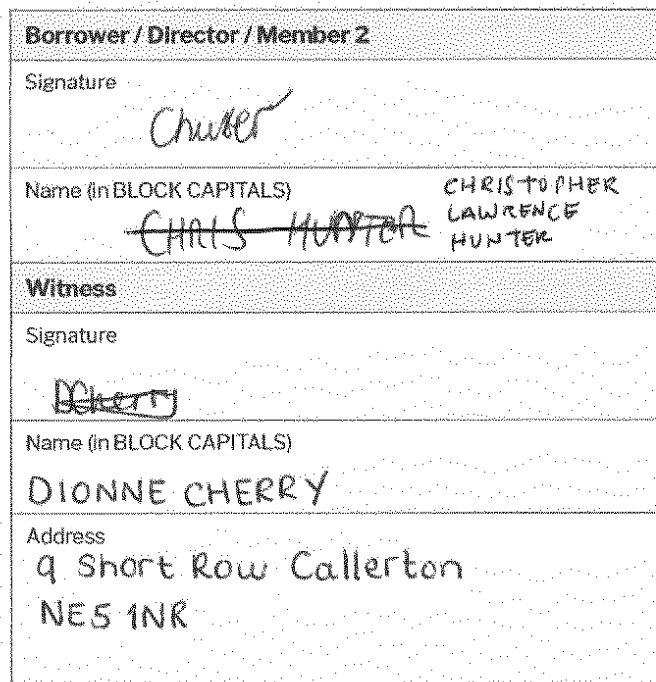 Borrower / Director / Member 2
Signature
Name (in BLOCK CAPITALS)
CHRIS HUNTER
CHRISTOPHER
LAWRENCE
HUNTER
Witness
Signature
DCherry
Name (in BLOCK CAPITALS)
DIONNE CHERRY
Address
9 Short Row Callerton
NE5 1NR